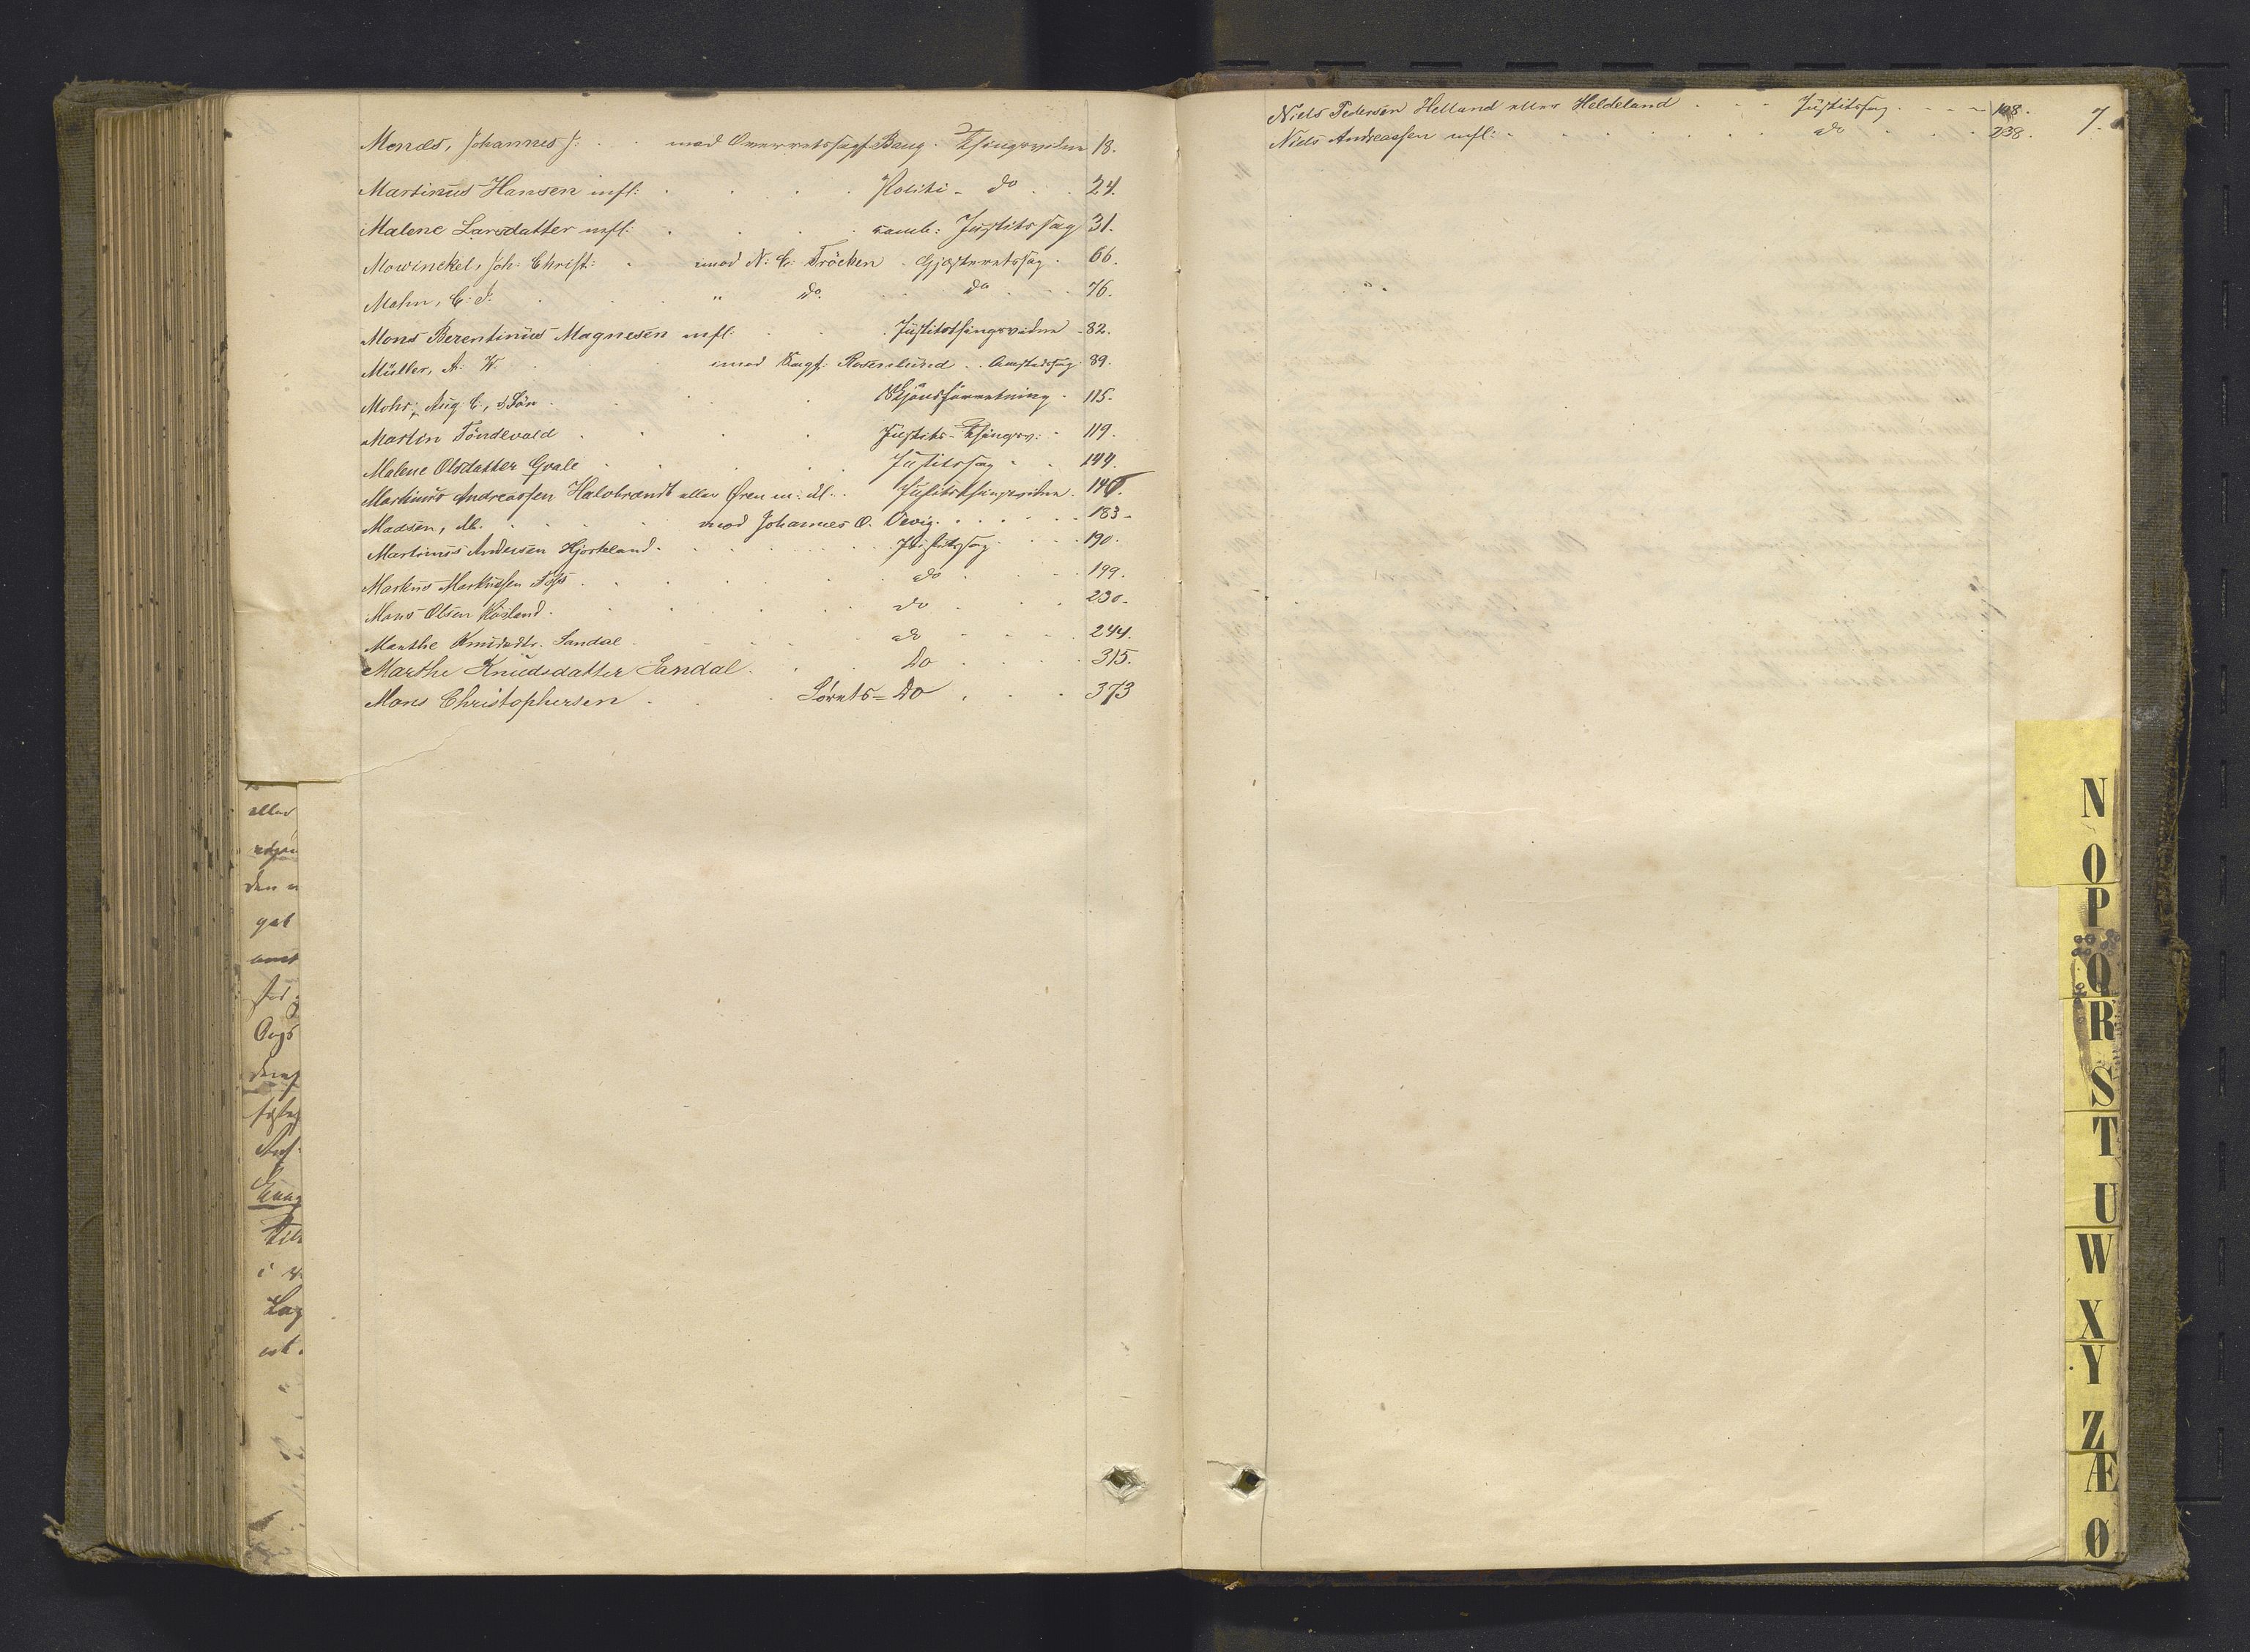 Mendes, Johannes J. . . mod Overretssagf. Baug. Thingsvidne 18.
Martinus Hansen mfl: . . . . Politi - do . . 24.
Malene Larsdatter mfl: . . . . comb: Justitssag 31.
Mowinckel, Joh: Christ: . imod N: C: Tröchen . Gjæsteretssag . 66.
Mahn, C: F: . . . " do. . . do . . 76.
Mons Berentinus Magnesen mfl: . . . Justitsthingsvidne - 82.
Müller, A. W. . . . imod Sagf: Rosenlund . . Arrestsag . 89.
Mohr, Aug: C., & Sön . . . . . Skjönsforretning . 115.
Martin Töndevold . . . . Justits-Thingsv: . 119.
Malene Olsdatter Qvale . . . . Justitssag . . 144.
Martinus Andreassen Halvbrandt eller Øren m: fl: . Justitsthingsvidne .
Madsen, M. . . . . mod Johannes O. Vevig . . . . . 183.
Martinus Andersen Hjorteland . . . . . Justitssag . . . . 190.
Markus Markussen Foss . . . . . . do . . . . 199.
Mons Olsen . . . . . . do . . . 230.
Marthe Knudsdtr. Sandal . . . . . do . . . . 244.
Marthe Knudsdatter Sandal . . . Do . . . . 315.
Mons Christophersen . . . Sørets = Do . . . 373
Niels Pedersen Helland eller Heldeland . . . Justitssag . . . . 108. 7.
Niels Andreassen mfl: . . . . . . . do . . . 238.
eller
den
gab
amt
Lag
N
O
P
Q
R
S
T
U
W
X
Y
Z
Æ
Ø